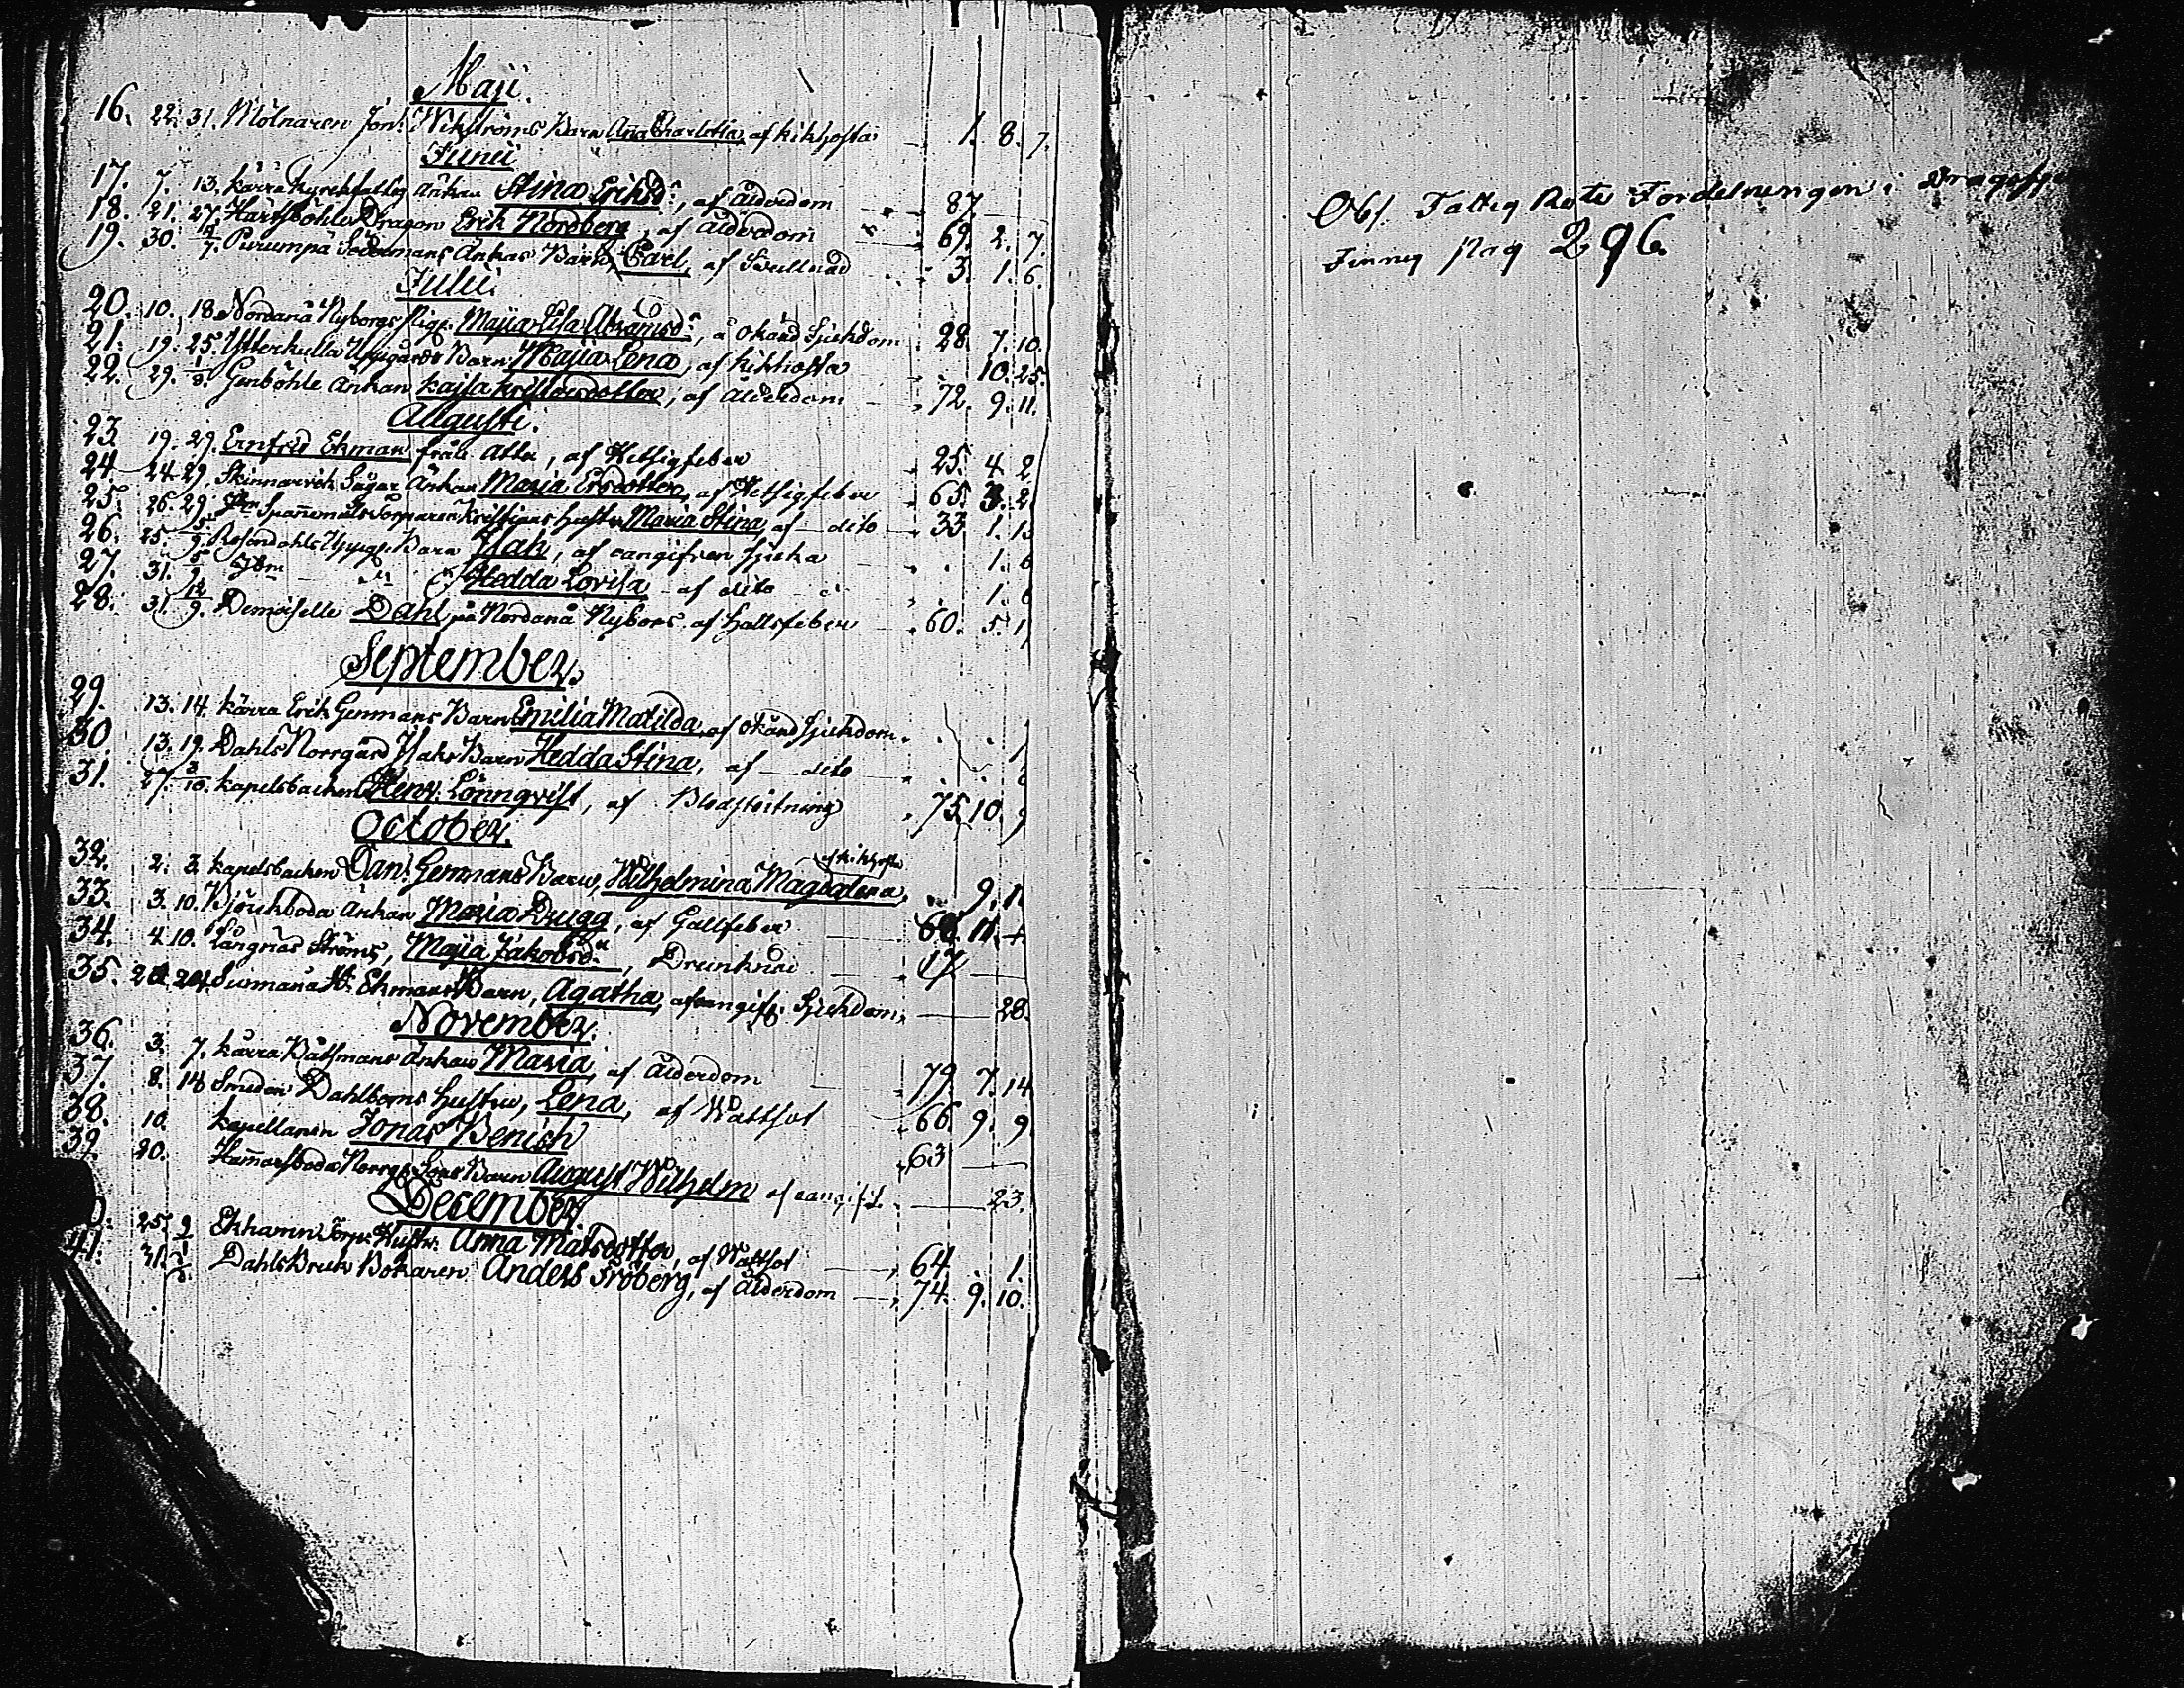 Maji.
16. 22. 31. Mölnaren Jon: Wikströms Barn Ana Charlotta, af kikhosta 1. 8. 7.
Junii
17. 7. 13. Kärra Kyrckfattig Änkan Stina Eriksdr, af ålderdom 87.
18. 21. 27. Härtsböhle Dragon Erik Nordberg, af ålderdom 69. 2. 7.
19. 30. 12/7. Södermans Änkas Barn, Carl, af 3. 1. 6.
Julii.
20. 10. 18. Nordanå Nyborgs Pig: Majia Lisa Abramsdr, a okänd Sjukdom 28. 7. 10.
21. 19. 25. Ytterkulla Uppgårds Barn Majia Lena, af kikhosta 10. 25.
22. 29. 1/8. Genböhle Änkan Kajsa Kristersdotter, af ålderdom 72. 9. 11.
Augusti.
23. 19. 29. Ernfrid Ekman från Attu, af Hetsigfeber 25. 4. 2
24. 24. 29. Skinnarvik Sågar Änkan Maria Ersdotter, af Hetsigfeber 65. 3. 2
25. 26. 29. Torparen Kristians Hustru Maria Stina, af dito 33. 1. 13
26. 25. 5/9. Rosendahls Uppg: Barn Isak, af oangifven sjuka 1. 6
27. 31. 5/9. Ibm Hedda Lovisa af dito 1. 6
28. 31. 12/9. Demoiselle Dahl, på Nordanå Nybors, af Gallfeber 60. 5. 1
September.
29. 13. 14. Kärra Erik Genmans Barn Emilia Matilda, af okänd Sjukdom. 1
30. 13. 19. Dahls Norrgård Isaks Barn Hedda Stina, af dito
31. 27. 3/10. Kapelsbacken Henr: Lönnqvist, af Blodstörtning 75. 10. 9
October.
32. 2. 3. Kapelsbacken Dan: Genmans Barn, Wilhelmina Magdalena, af kikhosta 9. 11
33. 3. 10. Björkboda Änkan Maria Drugg, af Gallfeber 60. 11.
34. 4. 10. Långnäs Ströms, Majia Jakobsdr, Drunknad 17
35. 20. 24. Sunnanå H: Ekmans Barn, Agatha, af oangif: Sjukdom, 28.
November.
36. 3. 7. Kärra Båtsmans Änkan Maria, af ålderdom 79. 7. 14
37. 8. 14. Smeden Dahlboms Hustru, Lena, af Wattsot 66. 9. 9
38. 10. Kapellanen Jonas Benich 63
39. 20. Hamarsboda Norrg: Barn August Wilhelm af oangift. 23.
December.
25. 2/1 Ekhamn Torp: Hustr: Anna Matsdotter, af Wattsot 64. 1.
41. 31. Dahlsbruk Bokaren Anders Fröberg, af ålderdom 74. 9. 10.
Obs. Fattig Rote Fördelningen i Dragsf
Finnes pag 296.